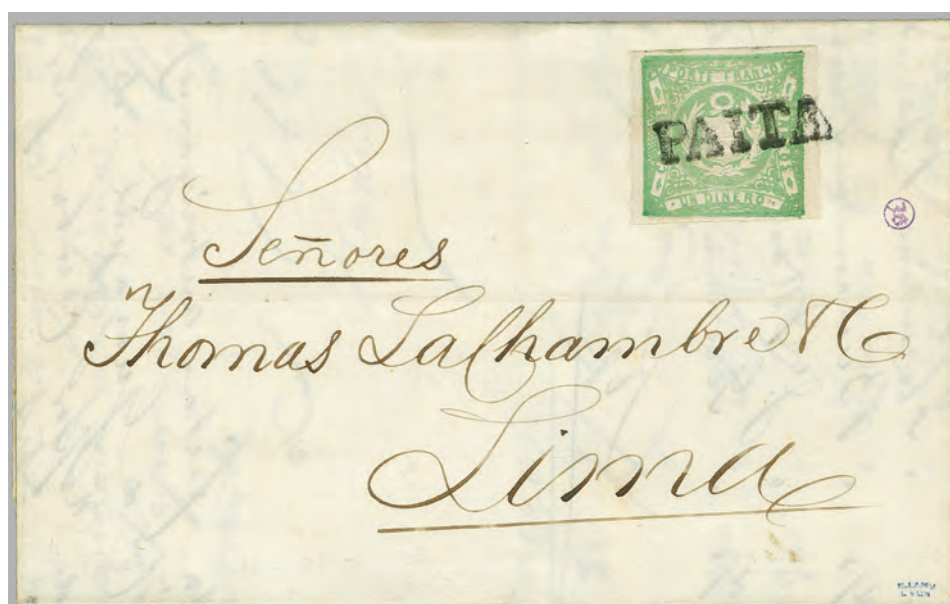 PORTE FRANCO
PAITA
UN DINERO
Señores
Thomas Lalhambre & C
Lima